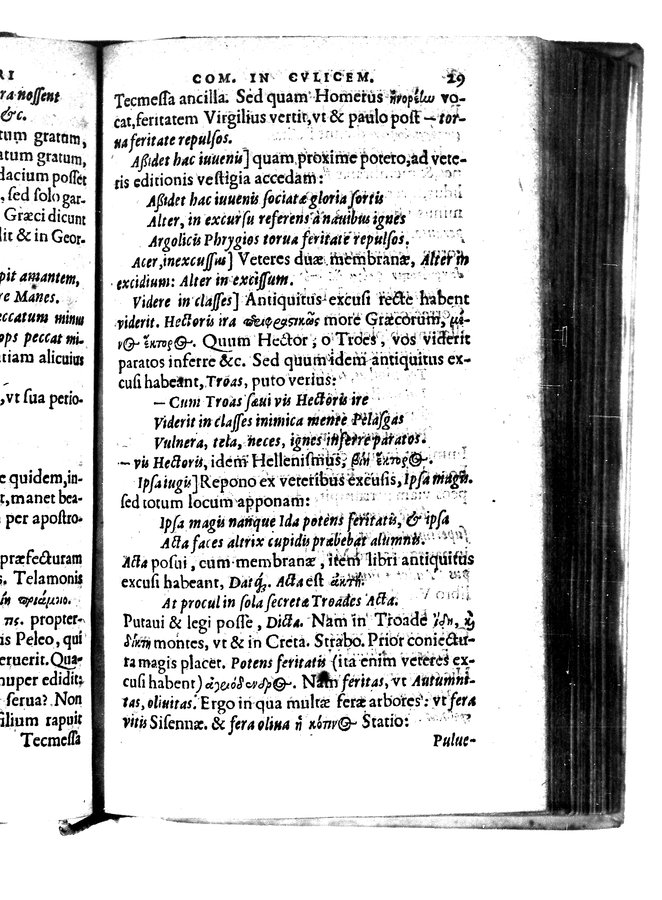 RI
ra nossent
&c.
tum gratum,
atum gratum,
dacium posset
, sed solo gar-
Græci dicunt
lit & in Geor-
pit amantem,
re Manes.
eccatum minus
ops peccat mi-
tiam alicuius
, vt sua perio-
e quidem, in-
t, manet bea-
per apostro-
præfecturam
s. Telamonis
πριάμοιο.
πς. propter-
is Peleo, qui
eruerit. Qua-
nuper edidit:
serua? Non
silium rapuit
Tecmessa
COM. IN CVLICEM. 29
Tecmessa ancilla. Sed quam Homerus ἠνορέίω vo-
cat, feritatem Virgilius vertit, vt & paulo post — tor-
ua feritate repulsos.
Aßidet hac iuueni] quam proxime potero, ad vete-
ris editionis vestigia accedam:
Aßidet hac iuuenis sociatæ gloria sortis
Alter, in excursu referens à nauibus ignes
Argolicis Phrygios torua feritate repulsos.
Acer, inexcussus] Veteres duæ membranæ, Alter in
excidium: Alter in excissum.
Videre in classes] Antiquitus excusi recte habent
viderit. Hectoris ira περιφραστικῶς more Græcorum, μέ-
ν@ ἕκτορ@. Quum Hector, o Troes, vos viderit
paratos inferre &c. Sed quum idem antiquitus ex-
cusi habeant, Troas, puto verius:
— Cum Troas sæui vis Hectoris ire
Viderit in classes inimica mente Pelasgas
Vulnera, tela, neces, ignes inferre paratos.
— vis Hectoris, idem Hellenismus, βίη ἕκτορ@.
Ipsa iugis] Repono ex veteribus excusis, Ipsa magis.
sed totum locum apponam:
Ipsa magis nanque Ida potens feritatis, & ipsa
Acta faces altrix cupidis præbebat alumnis.
Acta posui, cum membranæ, item libri antiquitus
excusi habeant, Datq́;. Acta est ἀκτή.
At procul in sola secretæ Troades Acta.
Putaui & legi posse, Dicta. Nam in Troade ἴδη, ϗ̀
δίκτη montes, vt & in Creta. Strabo. Prior coniectu-
ra magis placet. Potens feritatis (ita enim veteres ex-
cusi habent) ἀγριόδενδρ@. Nam feritas, vt Autumni-
tas, oliuitas. Ergo in qua multæ feræ arbores: vt fera
vitis Sisennæ. & fera oliua ἢ κόπιν@ Statio:
Pulue-